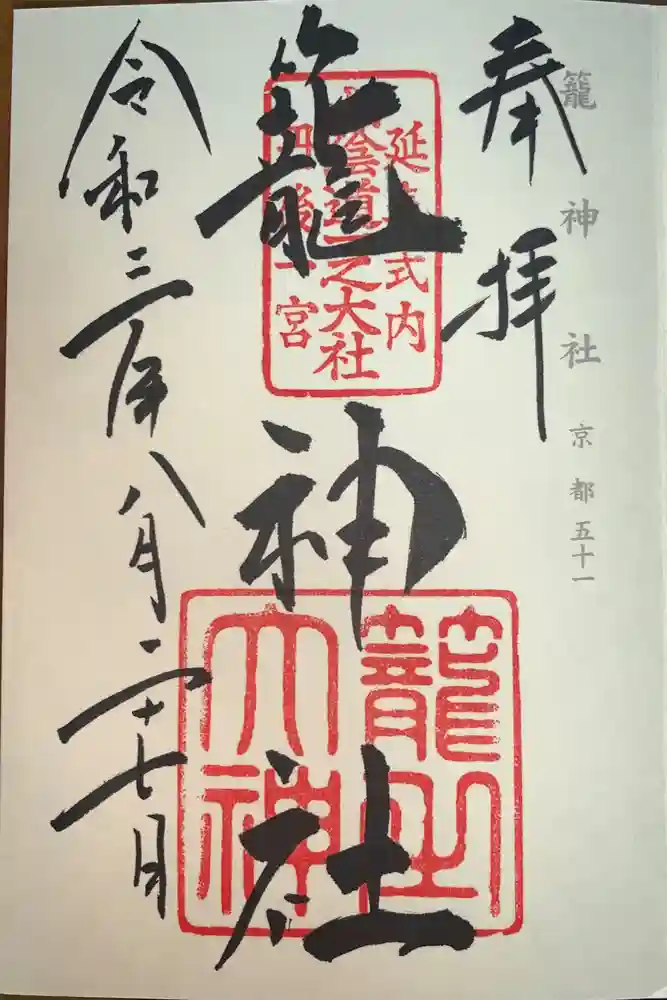 籠神社 京都五十一
奉拝
延喜式内
山陰道一之大社
丹後一宮
籠神社
籠之
大神
令和三年八月二十七日